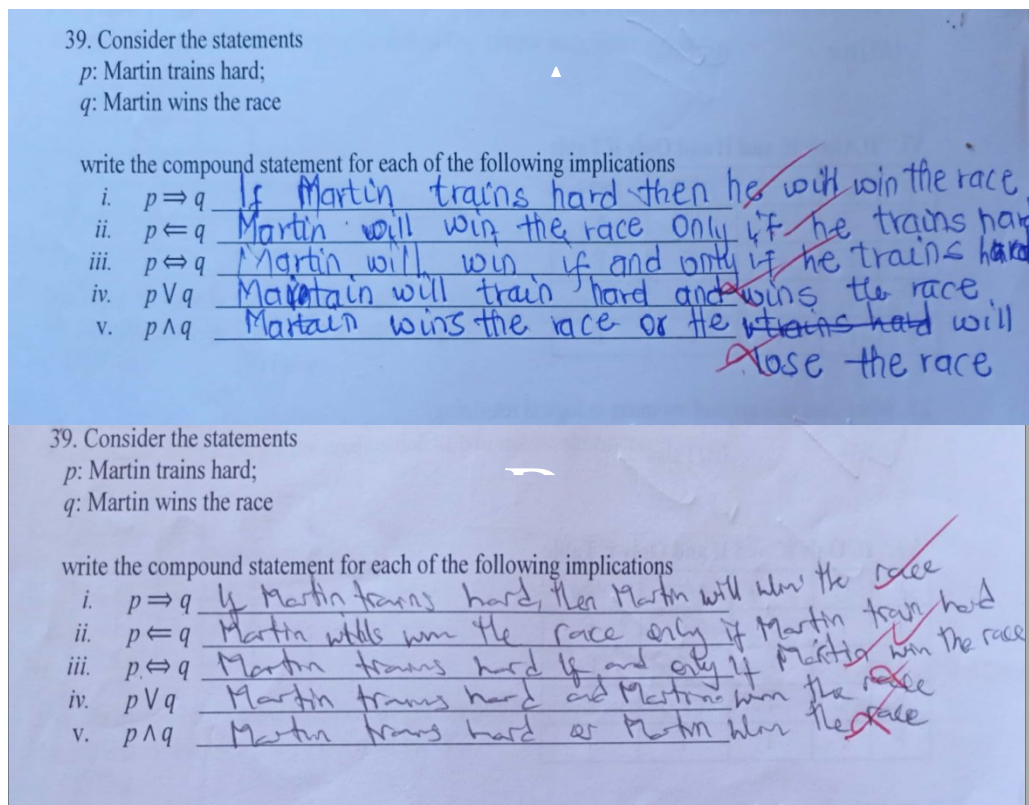 39. Consider the statements
p: Martin trains hard;
q: Martin wins the race
write the compound statement for each of the following implications
i. p ⇒ q If Martin trains hard then he will win the race
ii. p ⇐ q Martin will win the race only if he trains har
iii. p ⇔ q Martin will win if and only if he trains hard
iv. p V q Martain will train hard and wins the race
v. p ∧ q Martain wins the race or He trains hard will
lose the race
39. Consider the statements
p: Martin trains hard;
q: Martin wins the race
write the compound statement for each of the following implications
i. p ⇒ q If Martin trains hard, then Martin will win the race
ii. p ⇐ q Martin wills win the race only if Martin train hard
iii. p ⇔ q Martin trains hard if and only if Martin win the race
iv. p V q Martin trains hard and Martin win the race
v. p ∧ q Martin trains hard or Martin win the race